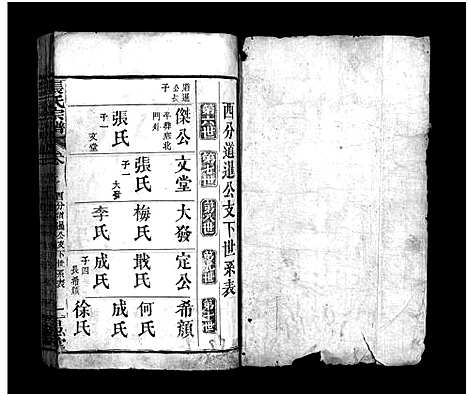 西分道暹公支下世系表
第六世
第七世
第八世
第九世
第十世
道暹公長子
傑公
張氏
子一
文堂
文堂
張氏
子一
大發
大發
梅氏
李氏
定公
戢氏
成氏
子四
長希顏
希顏
何氏
成氏
徐氏
張氏宗譜
西分道暹公支下世系表